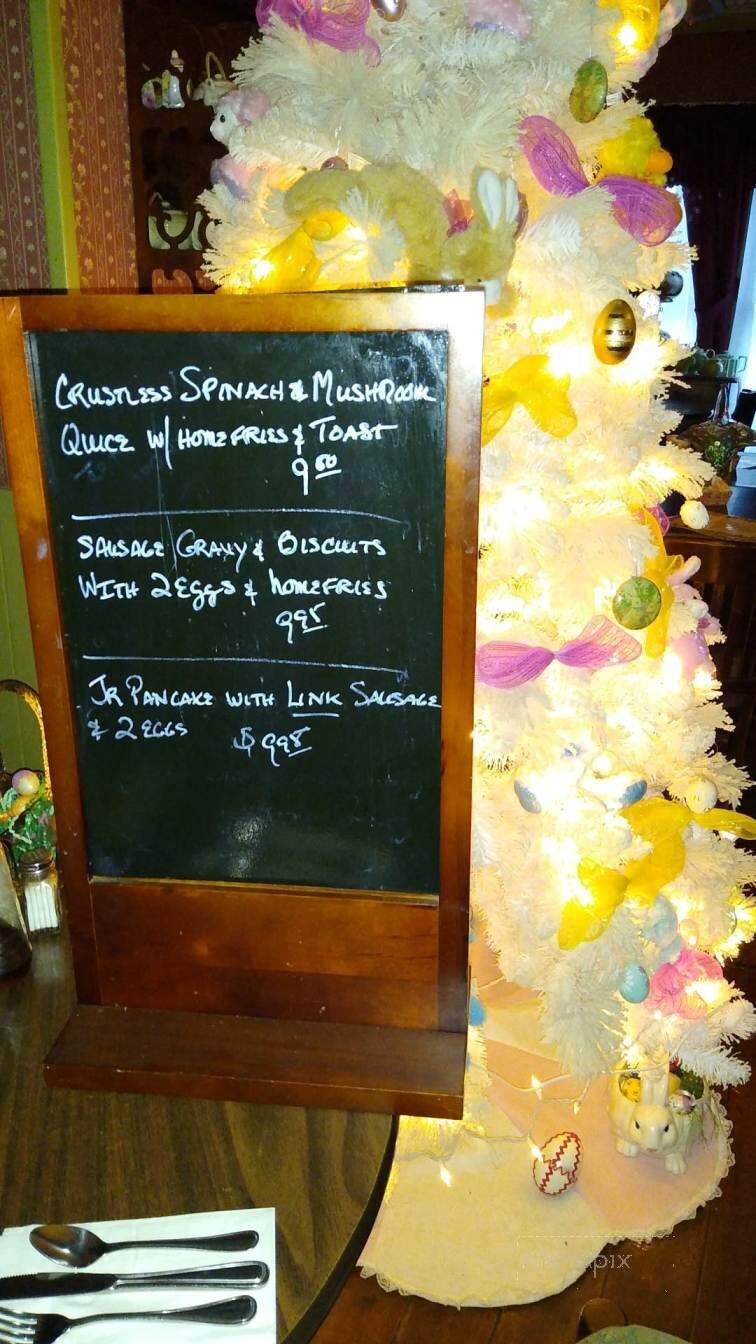 CRUSTLESS SPINACH & MUSHROOM
QUICE W/ HOMEFRIES & TOAST
9 50
SAUSAGE GRAVY & BISCUITS
WITH 2 EGGS & HOMEFRIES
9 95
JR PANCAKE WITH LINK SAUSAGE
& 2 EGGS $ 9 95